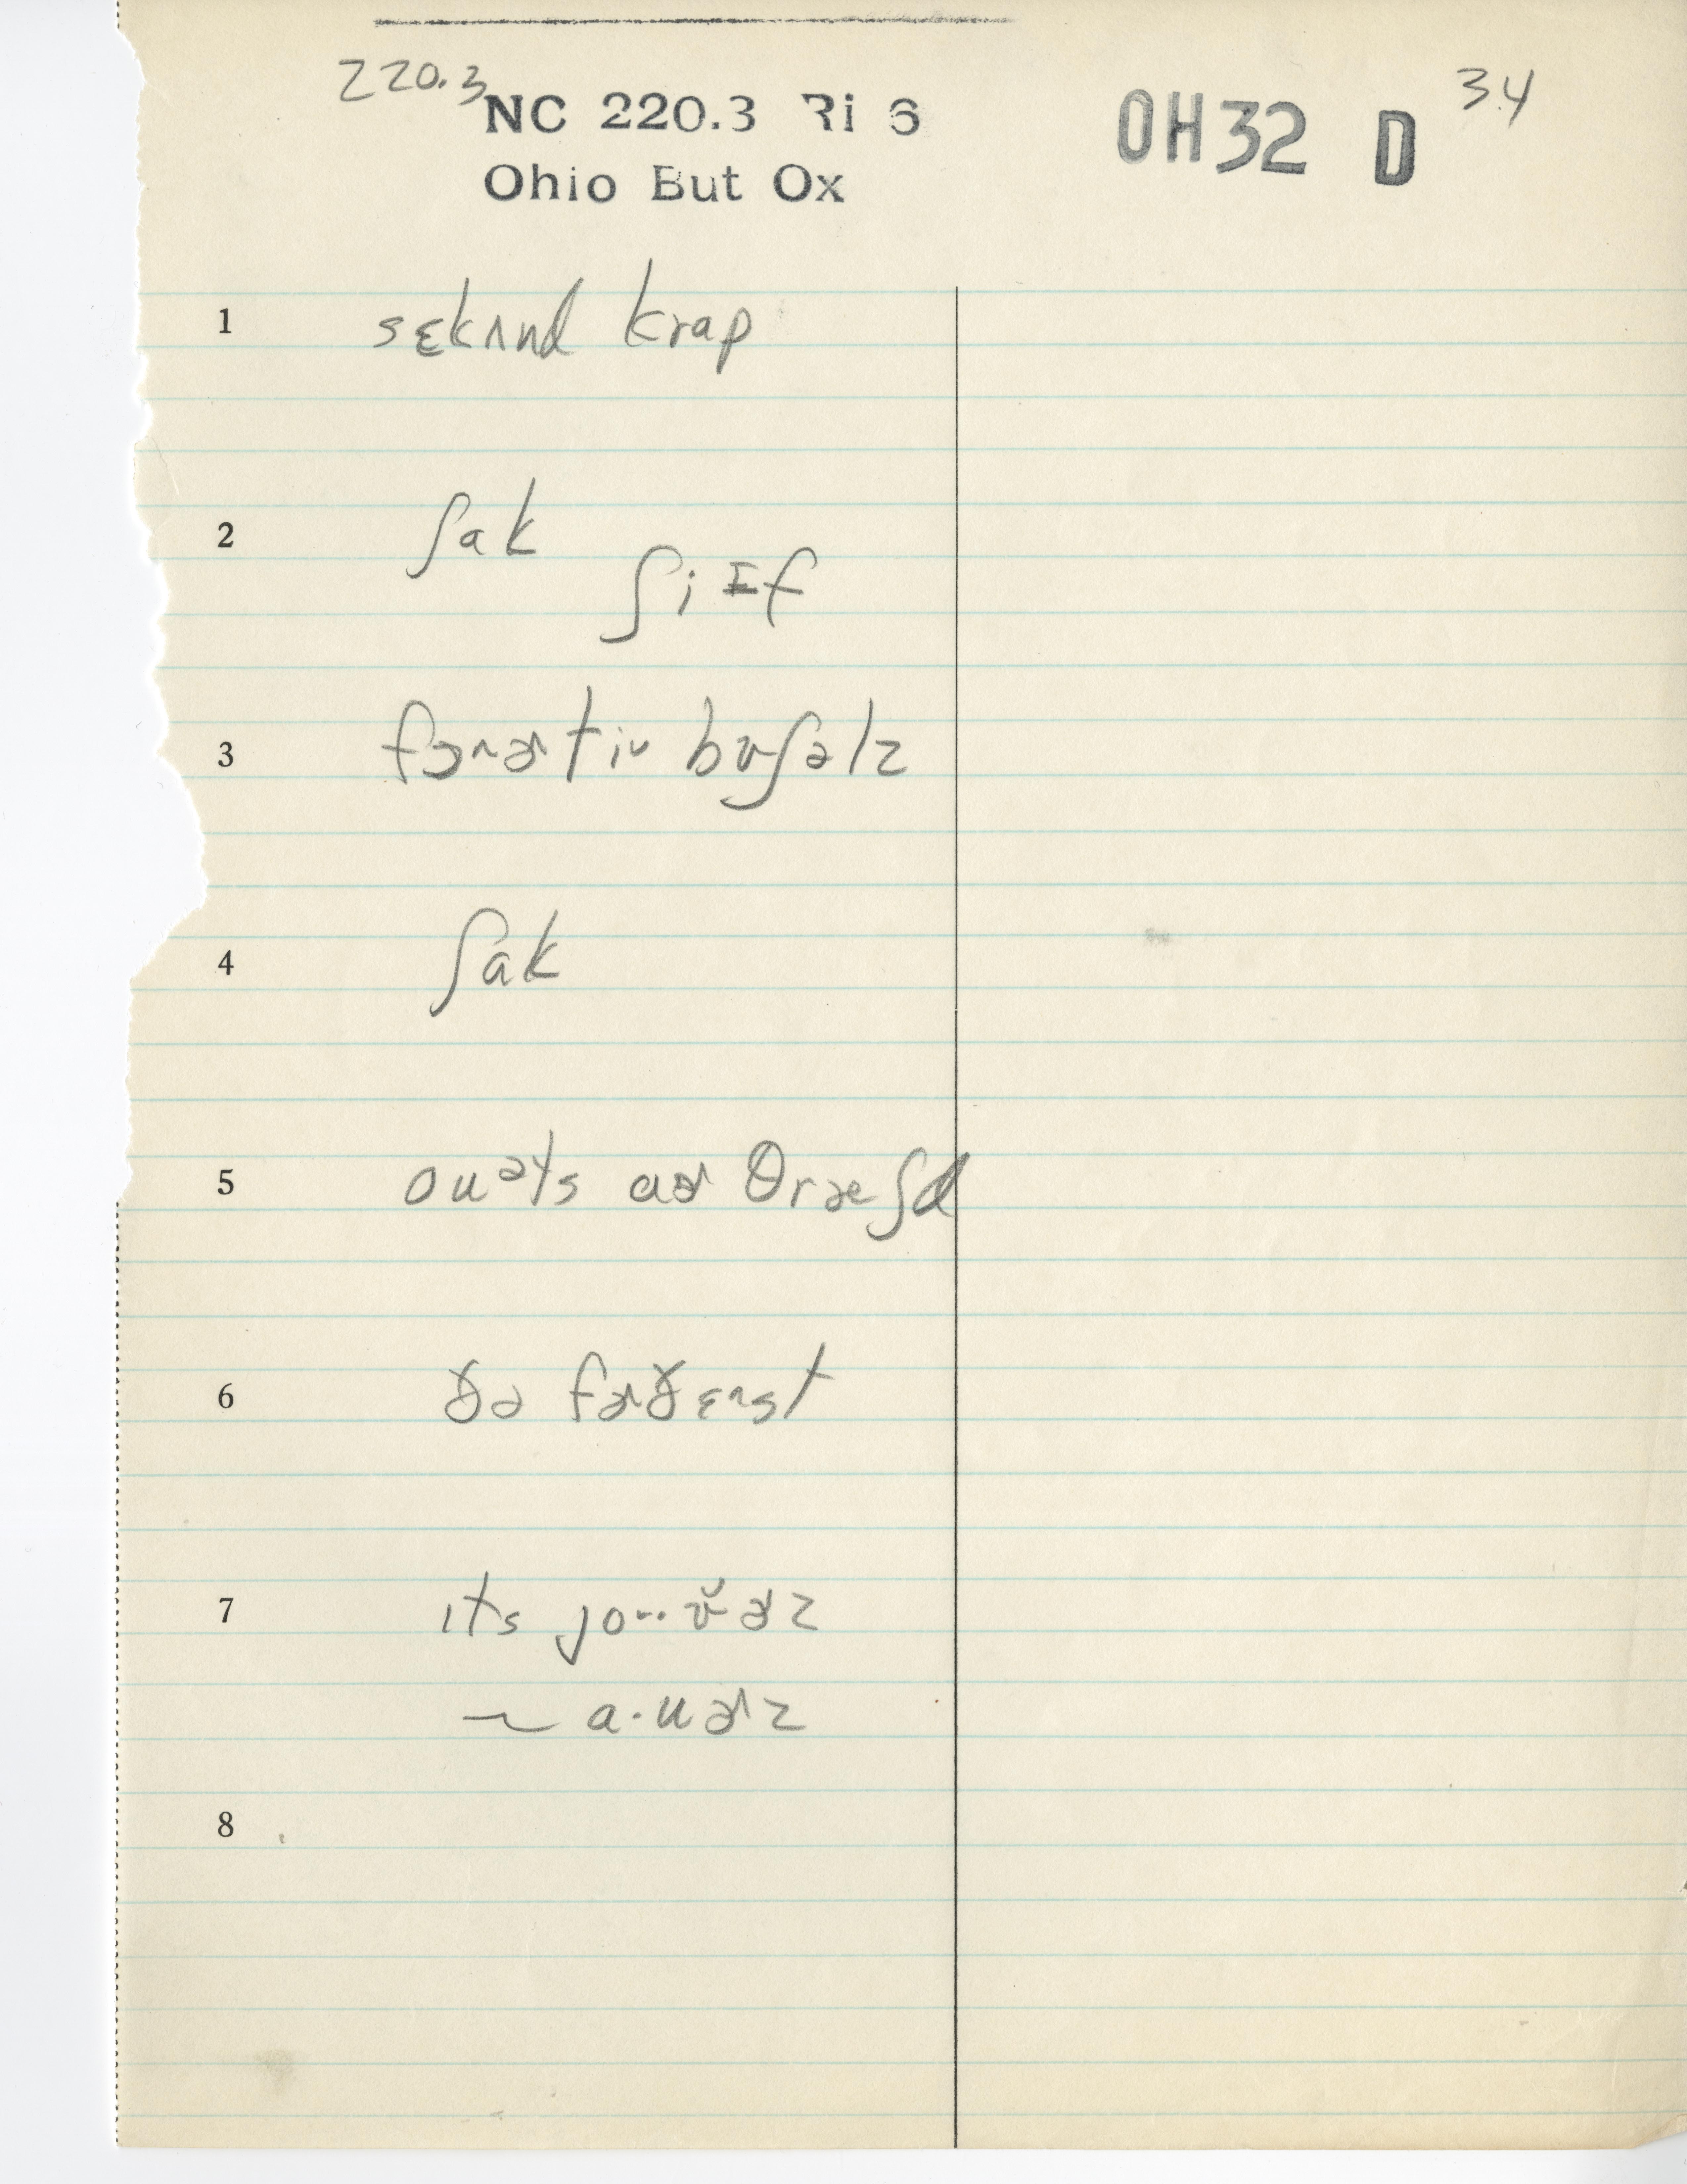 220.3
NC 220.3 Ri 6 OH32 D 34
Ohio But Ox
1 sɛkʌnd krap
2 ʃak
ʃiɪf
3 bʊʃəlz
4 ʃak
5 ouəts aɚ θræʃd
6 ðə fɚðɛʳst
7 ɪts
~ a·uɚz
8